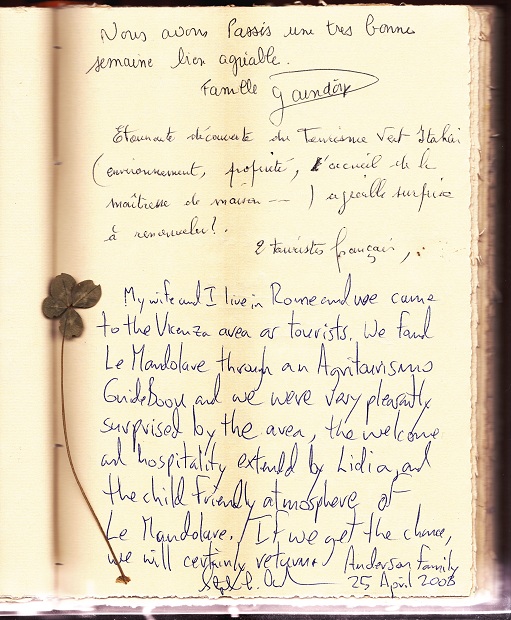 Nous avons Passés une tres bonne
semaine bien agréable.
Famille
Etonnante découverte du Tourisme Vert Italien
(environnement, propreté, l'accueil de la
maîtresse de maison -- ) agréable surprise
à renouveler!.
2 touristes français,
My wife and I live in Rome and we came
to the Vicenza area as tourists. We found
Le Mandolare through an Agriturismo
GuideBook and we were very pleasantly
surprised by the area, the welcome
and hospitality extended by Lidia, and
the child friendly atmosphere of
Le Mandolare. If we get the chance,
we will certainly return. Anderson Family
25 April 2008